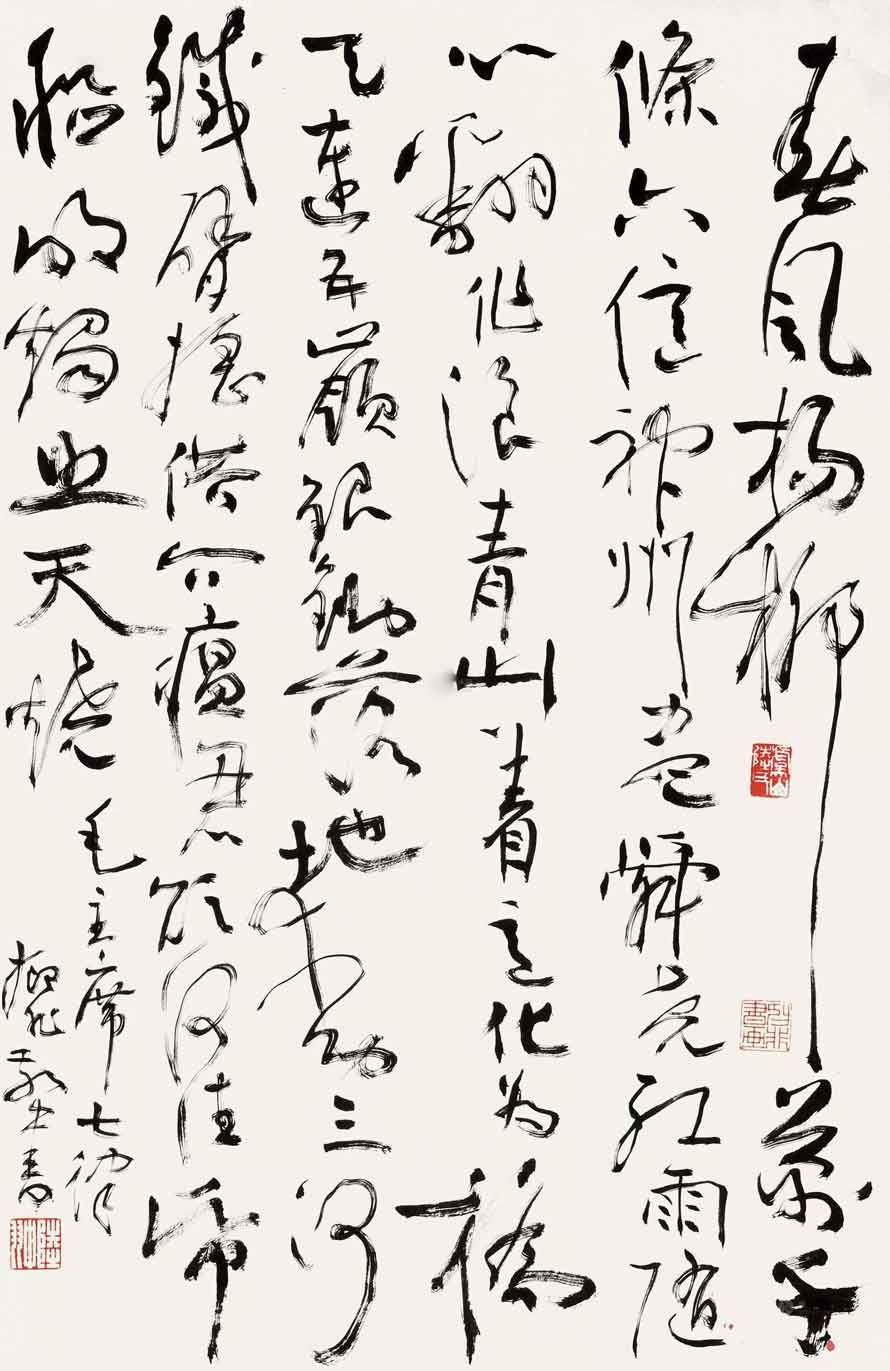 春風楊柳萬千
條六億神州盡舜堯紅雨隨
心翻作浪青山着意化为橋
天連五嶺銀鋤落地動三河
鐵臂搖借問瘟君欲何往紙
船明燭照天燒
毛主席七律
抑非敬書
虞山陸氏
抑非書畫